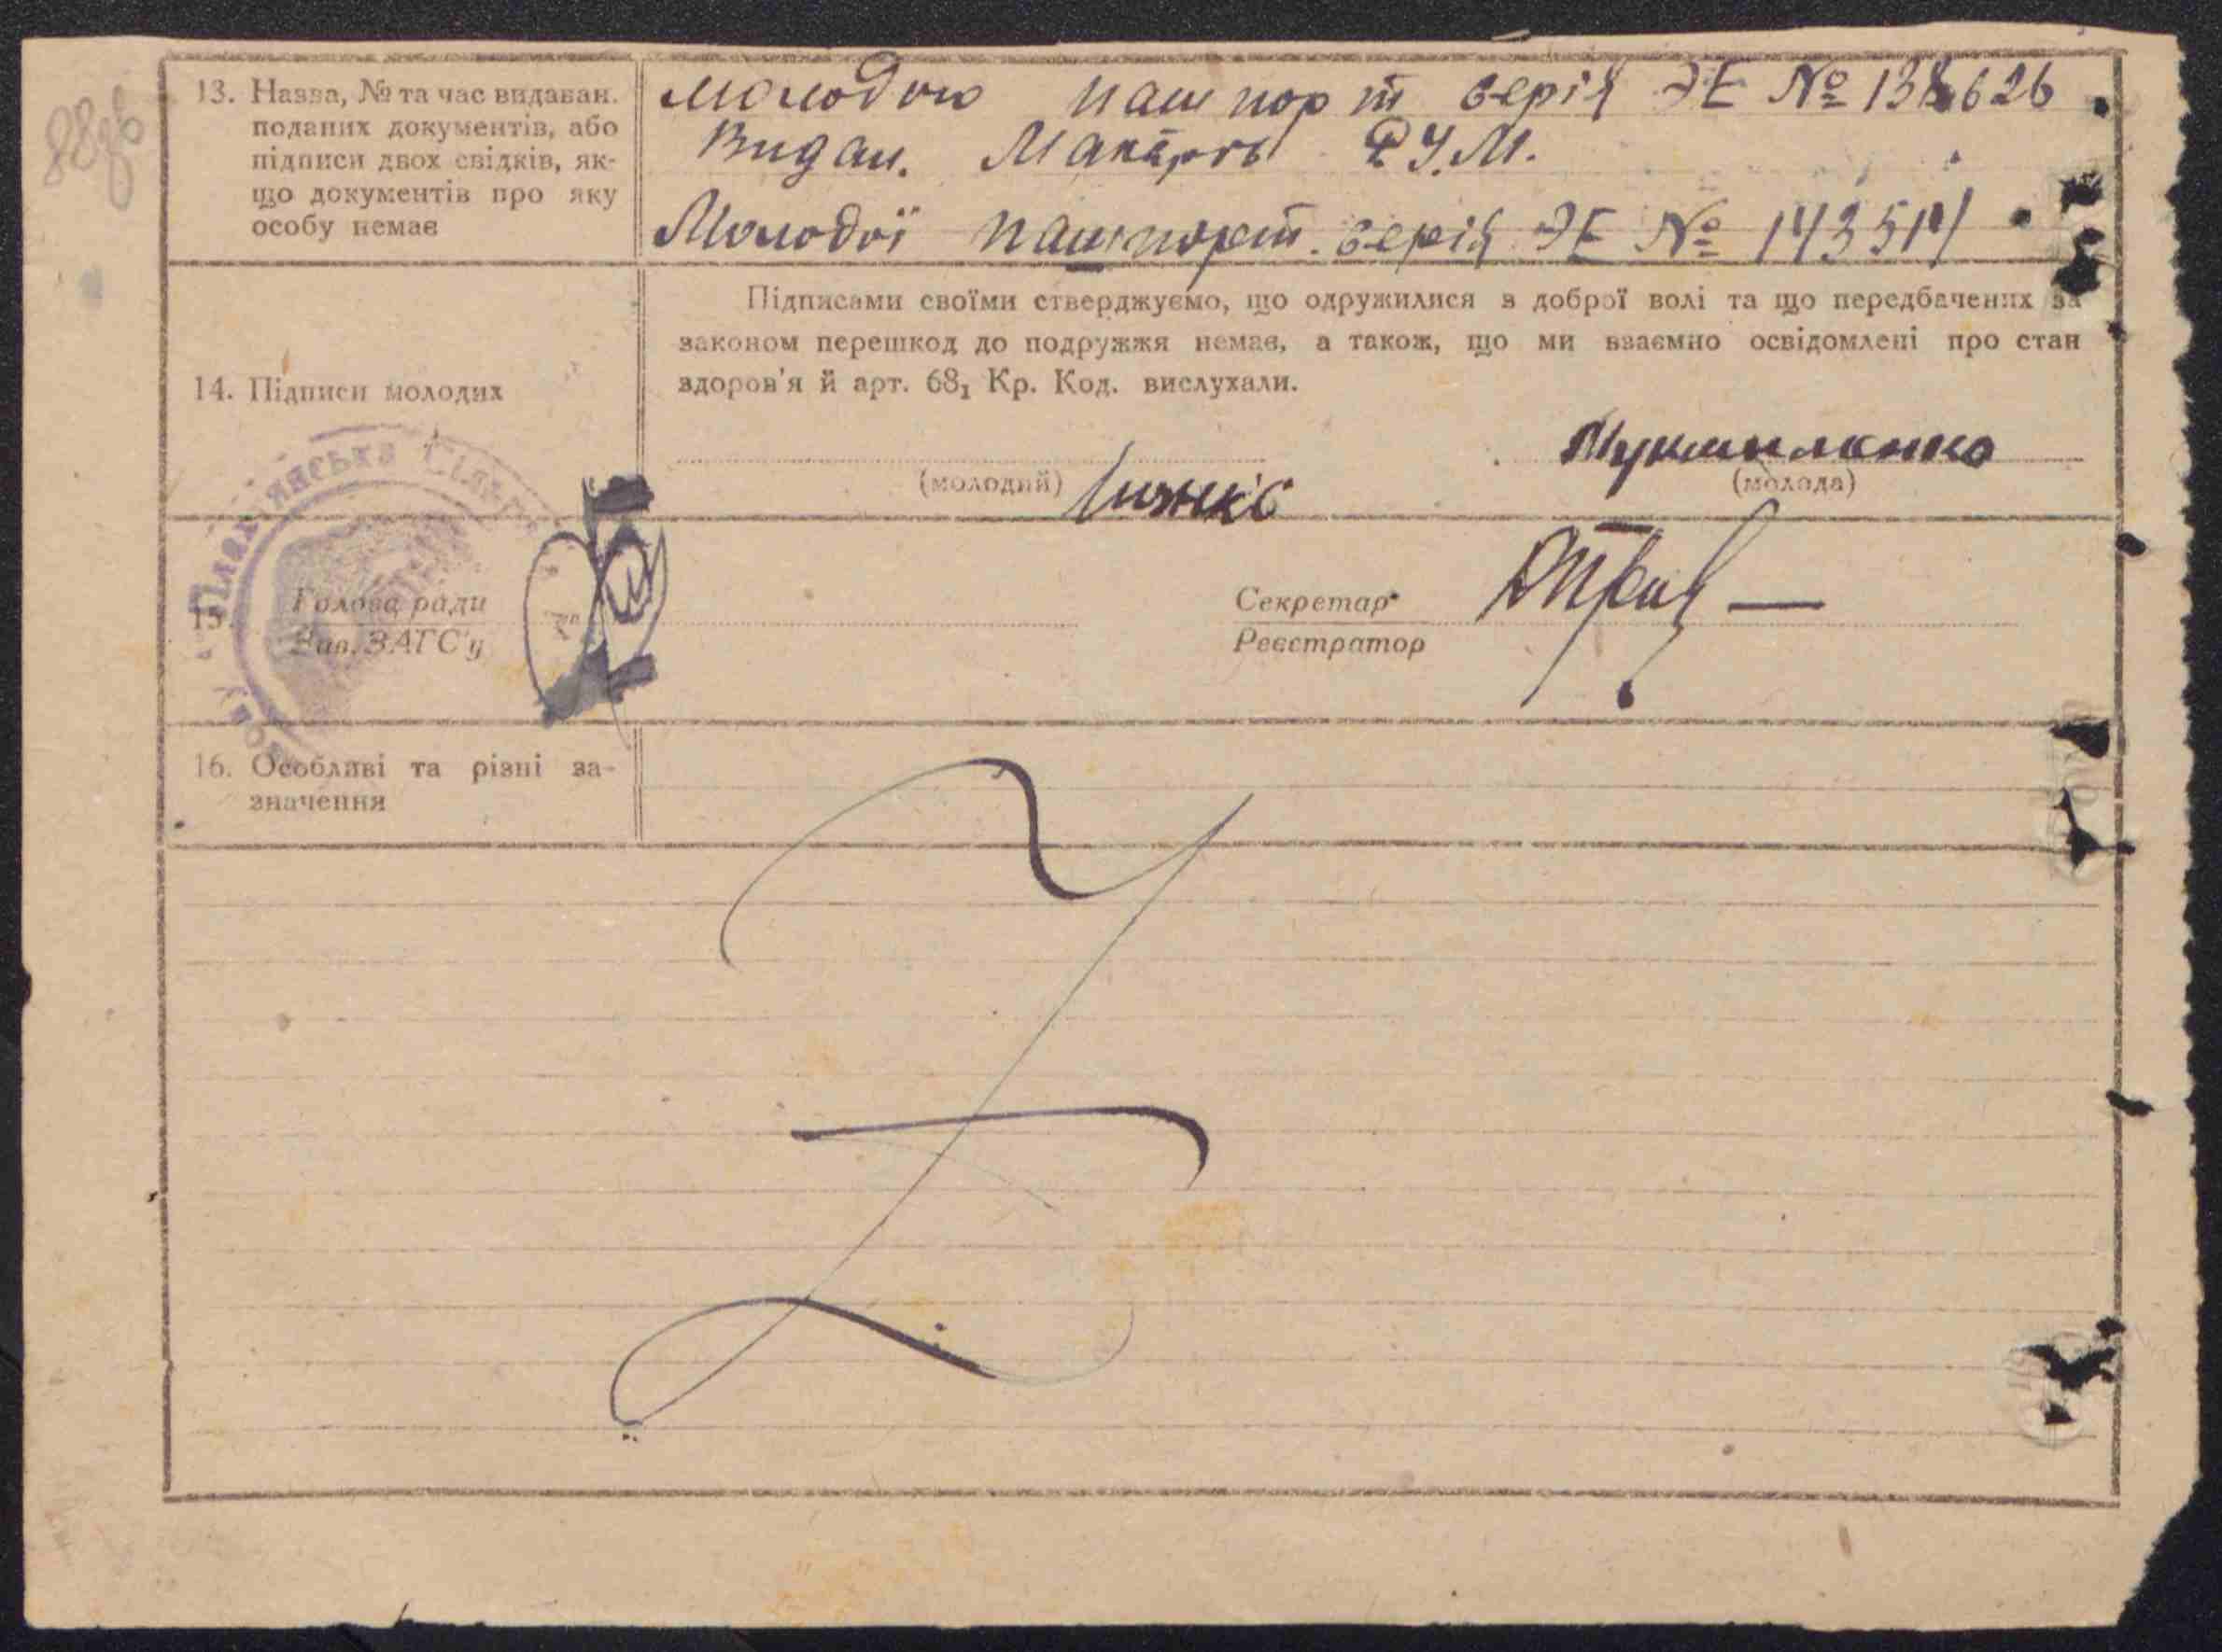 88зв
13. Назва, № та час видаван.
поданих документів, або
підписи двох свідків, як-
що документів про яку
особу немає
Молодого пашпорт серія ЭЕ № 138626
Видан. Макарів Р.У.М.
Молодої пашпорт. серія ЭЕ № 143514
Підписами своїми стверджуємо, що одружилися з доброї волі та що передбачених за
законом перешкод до подружжя немає, а також, що ми взаємно освідомлені про стан
здоров'я й арт. 68₁ Кр. Код. вислухали.
14. Підписи молодих
(молодий)
(молода)
15. Голова ради
Зав. ЗАГС'у
Секретар
Реєстратор
16. Особливі та різні за-
значення